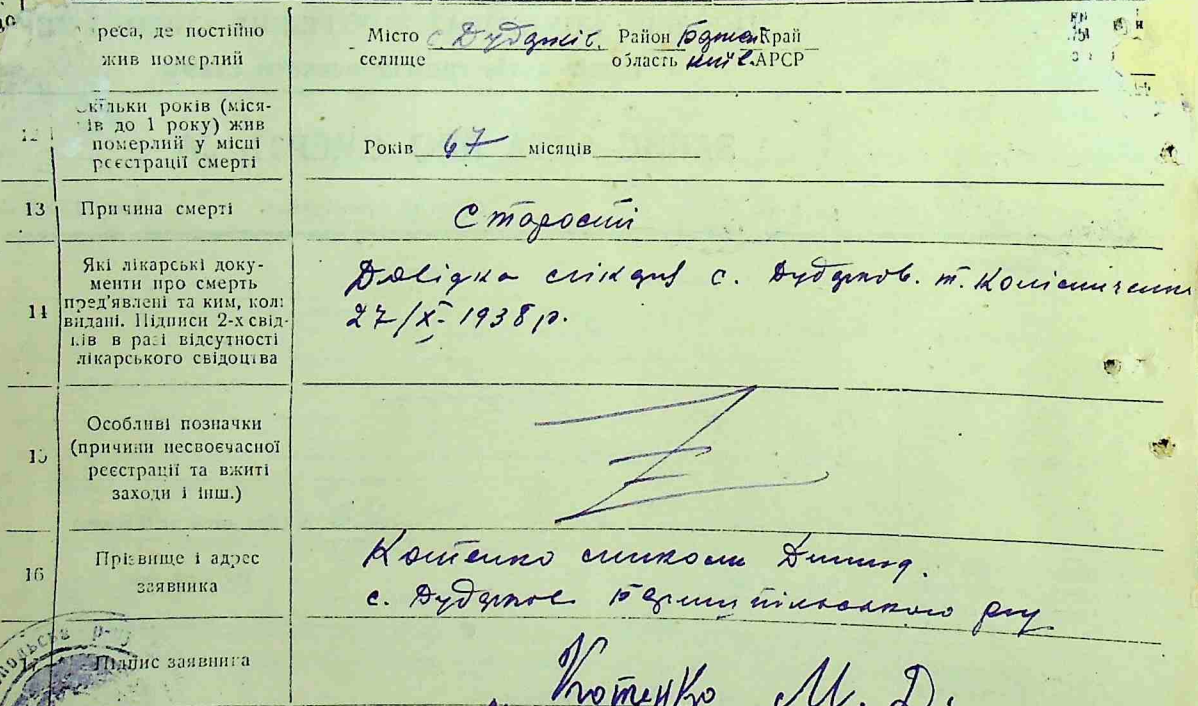 реса, де постійно жив померлий
Місто с Дударків. Район Бориспіл Край
селище область Київ. АРСР
12
кільки років (міся-
ів до 1 року) жив
померлий у місці
реєстрації смерті
Років 67 місяців
13 Причина смерті
Старості
14
Які лікарські доку-
менти про смерть
пред'явлені та ким, коли
видані. Підписи 2-х свід-
ків в разі відсутності
лікарського свідоцтва
Довідка с. Дударков. т.
27/X- 1938 р.
15
Особливі позначки
(причини несвоєчасної
реєстрації та вжиті
заходи і інш.)
16
Прізвище і адрес
заявника
Котенко Микола
с. Дударков Бориспільського р-ну
17 Підпис заявника
Котенко М. Д.